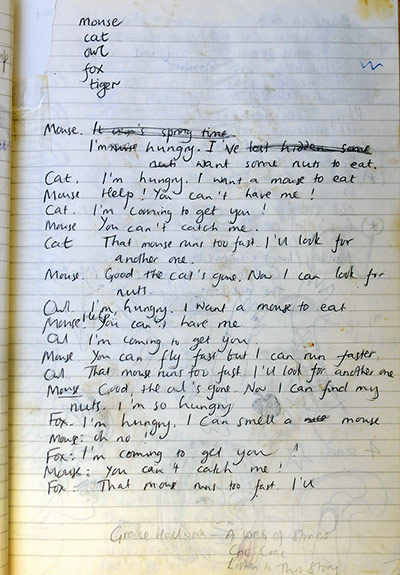 mouse
cat
owl
fox
tiger
Mouse. It was's spring time
I'm hungry. I've lost hidden some
nuts want some nuts to eat.
Cat. I'm hungry. I want a mouse to eat
Mouse Help! You can't have me!
Cat. I'm coming to get you!
Mouse You can't catch me.
Cat That mouse runs too fast. I'll look for
another one.
Mouse. Good, the cat's gone. Now I can look for
nuts.
Owl I'm hungry. I want a mouse to eat
Mouse Help! You can't have me
Owl I'm coming to get you.
Mouse You can fly fast but I can run faster.
Owl. That mouse runs too fast. I'll look for another one
Mouse Good, the owl's gone. Now I can find my
nuts. I'm so hungry.
Fox. I'm hungry. I can smell a nice mouse
Mouse: oh no!
Fox: I'm coming to get you!
Mouse: You can't catch me!
Fox: That mouse runs too fast I'll
Grace Hallworth - A Web of Stories
Listen to This Story